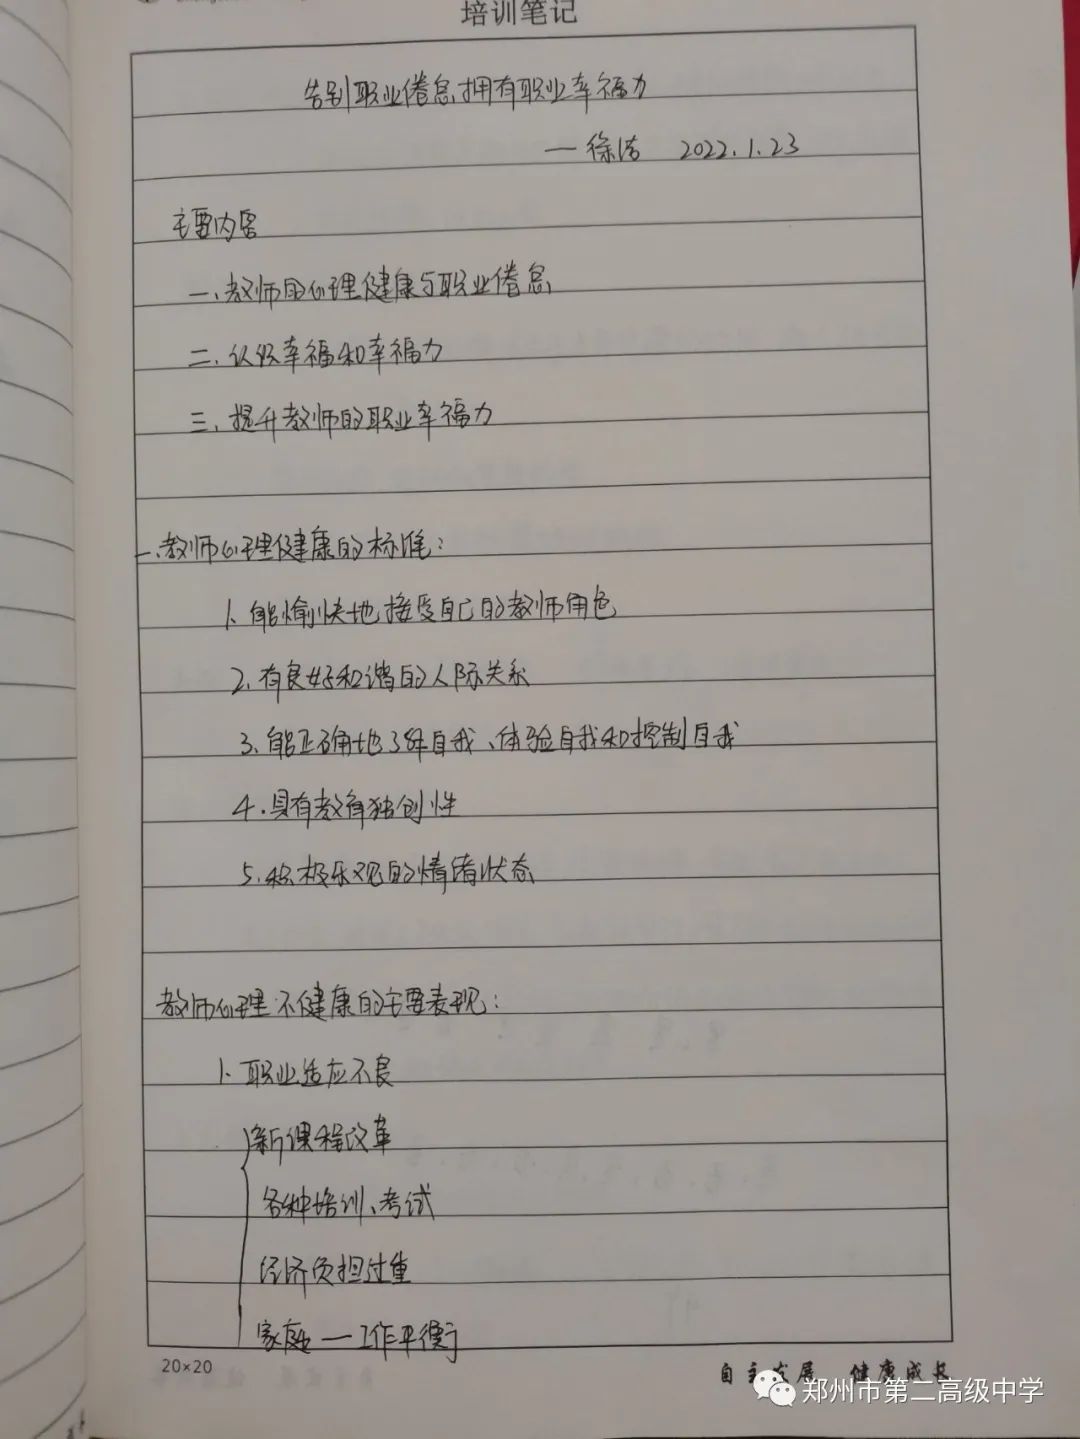 培训笔记
告别职业倦怠,拥有职业幸福力
— 徐洁 2022.1.23
主要内容
一、教师的心理健康与职业倦怠
二、认识幸福和幸福力
三、提升教师的职业幸福力
一、教师心理健康的标准：
1、能愉快地接受自己的教师角色
2、有良好和谐的人际关系
3、能正确地了解自我、体验自我和控制自我
4、具有教育独创性
5、积极乐观的情绪状态
教师心理不健康的主要表现：
1、职业适应不良
新课程改革
各种培训、考试
经济负担过重
家庭—工作平衡
20×20
自主发展 健康成长
郑州市第二高级中学